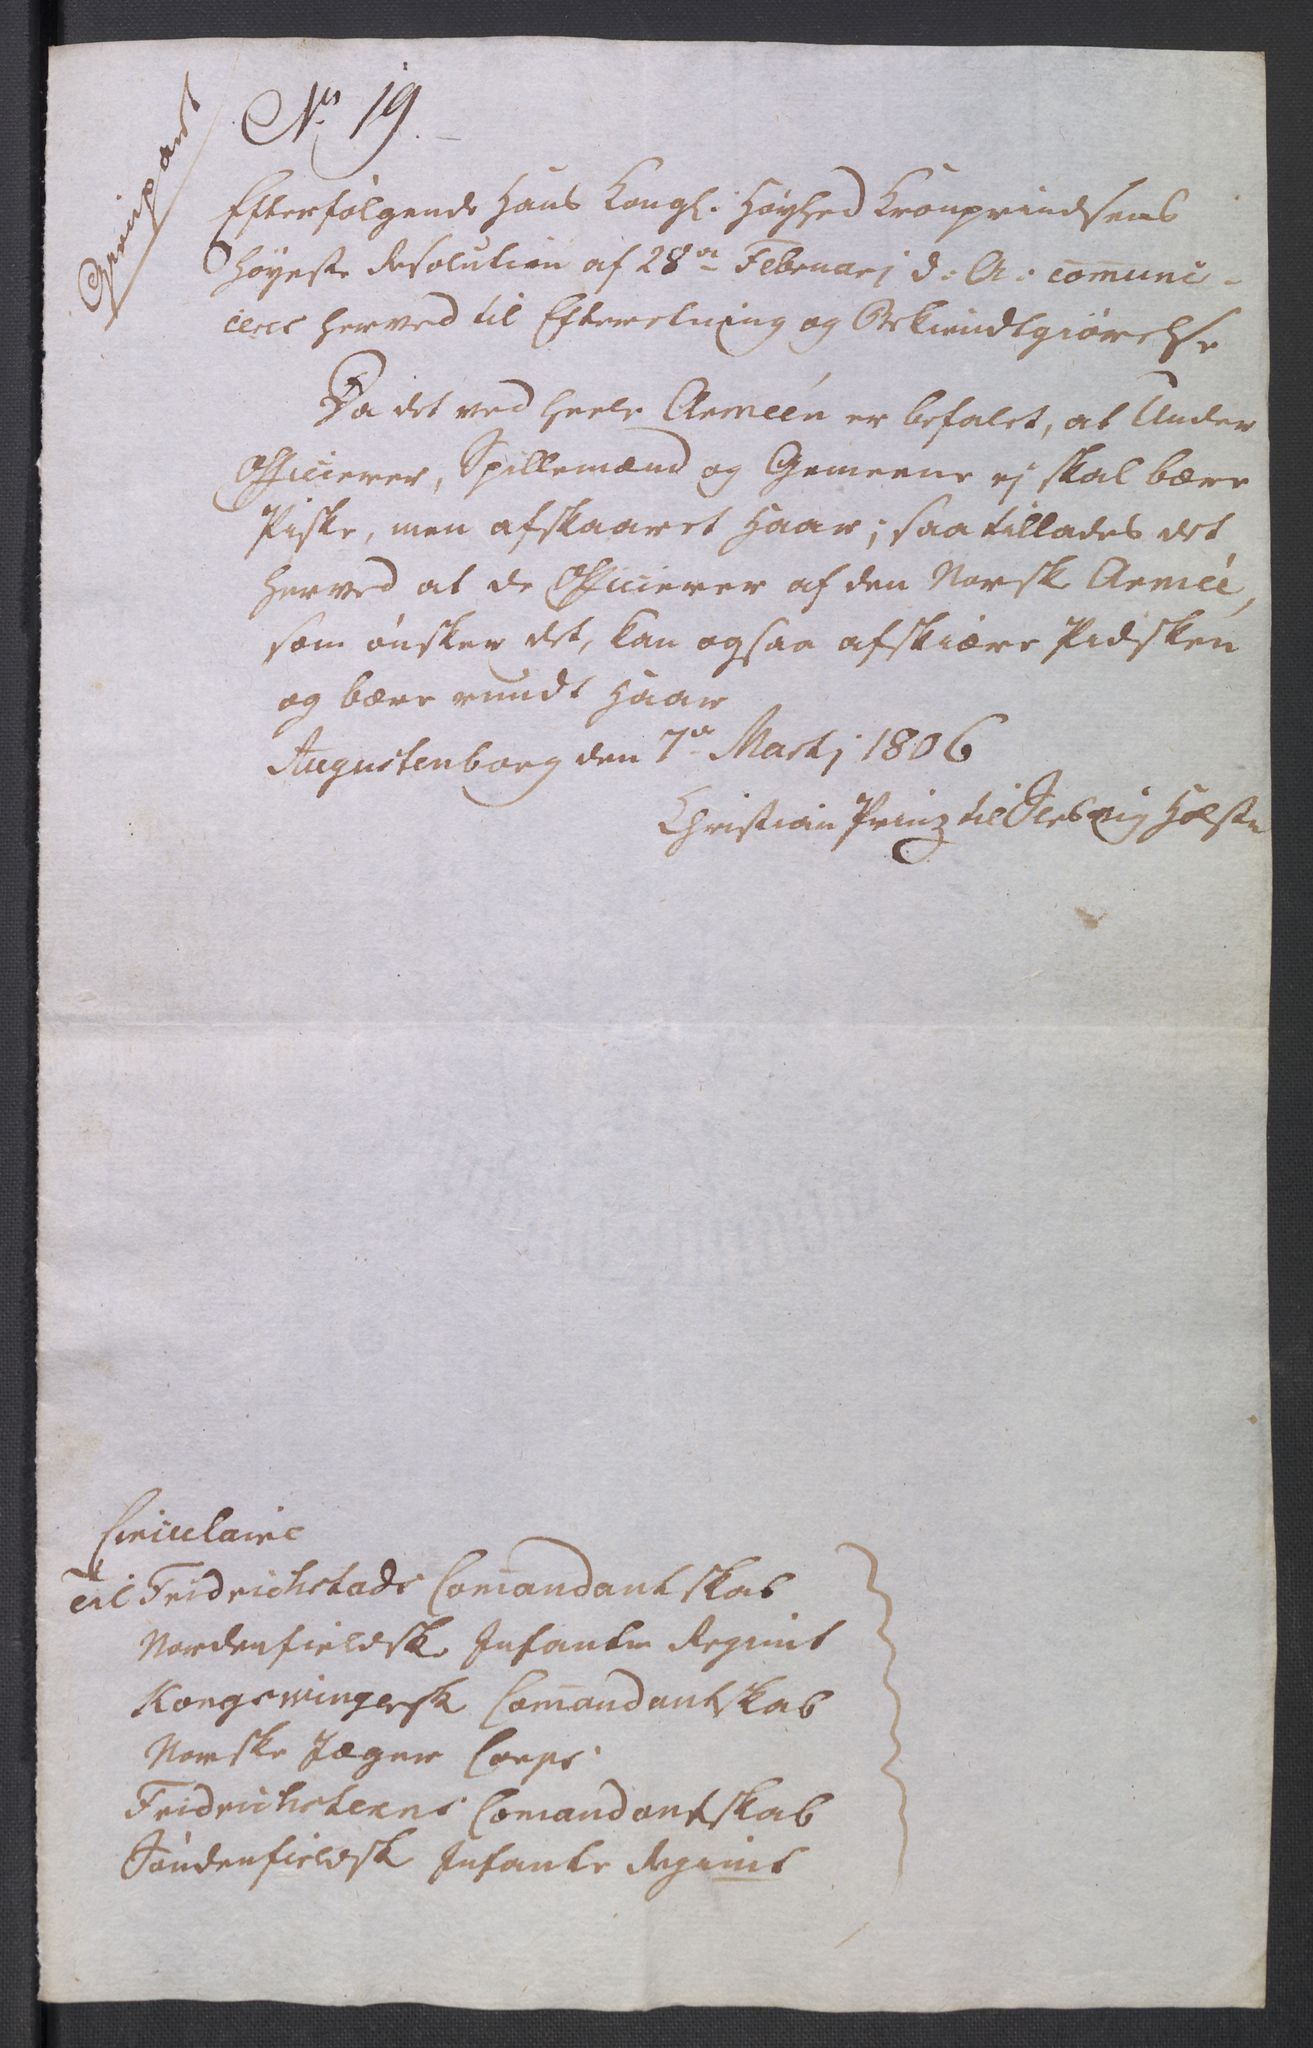 No 19.
Efterfølgende Hans Kongl: Høyhed Kronprindsens
Høyeste Resolution af 28de Februarj d: A: com̄uni-
ceres herved til Efterretning og Bekiendtgiørelse
Da det ved heele Armeén er befalet, at Under
Officierer, Spillemænd og Gemeene ej skal bære
Piske, men afskaaret Haar; saa tillades det
herved at de Officierer af den Norske Armeé,
som ønsker det, kan ogsaa afskiære Pidsken
og bære rundt Haar
Augustenborg den 7de Martj 1806
Christian Prinz til Slesvig Holsten
Circulaire
til Fridrichstads Com̄andantskab
Nordenfieldske Infanterie Regiment
Kongswingersk Com̄andantskab
Norske Jæger Corps
Fridrichsteens Com̄andantskab
Søndenfieldsk Infanterie Regiment